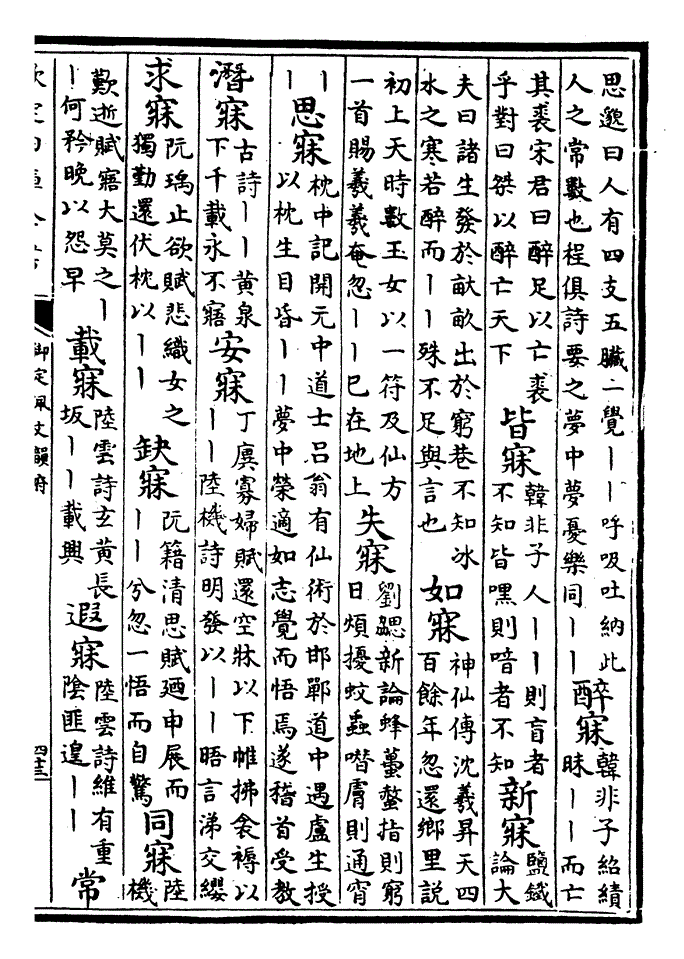 思邈曰人有四支五臟一覺丨丨呼吸吐納此
人之常數也程俱詩要之夢中夢憂樂同丨丨
醉寐
韓非子紹績
昧丨丨而亡
其裘宋君曰醉足以亡裘
乎對曰桀以醉亡天下
皆寐
韓非子人丨丨則盲者
不知皆嘿則喑者不知
新寐
鹽鐵
論大
夫曰諸生發於畎畝出於窮巷不知冰
水之寒若醉而丨丨殊不足與言也
如寐
神仙傳沈羲昇天四
百餘年忽還鄉里說
初上天時數玉女以一符及仙方
一首賜羲羲奄忽丨丨已在地上
失寐
劉勰新論蜂蠆螫指則窮
日煩擾蚊䖟噆膚則通宵
丨
丨
思寐
枕中記開元中道士吕翁有仙術於邯鄲道中遇盧生授
以枕生目昏丨丨夢中榮適如志覺而悟焉遂稽首受教
潛寐
古詩丨丨黄泉
下千載永不寤
安寐
丁廙寡婦賦還空牀以下帷拂衾褥以
丨丨陸機詩明發以丨丨晤言涕交纓
求寐
阮瑀止欲賦悲織女之
獨勤還伏枕以丨丨
缺寐
阮籍清思賦廼申展而
丨丨兮忽一悟而自驚
同寐
陸
機
歎逝賦寤大莫之丨
丨何矜晚以怨早
載寐
陸雲詩玄黄長
坂丨丨載興
遐寐
陸雲詩維有重
陰匪遑丨丨
常
御定佩文韻府
四十三